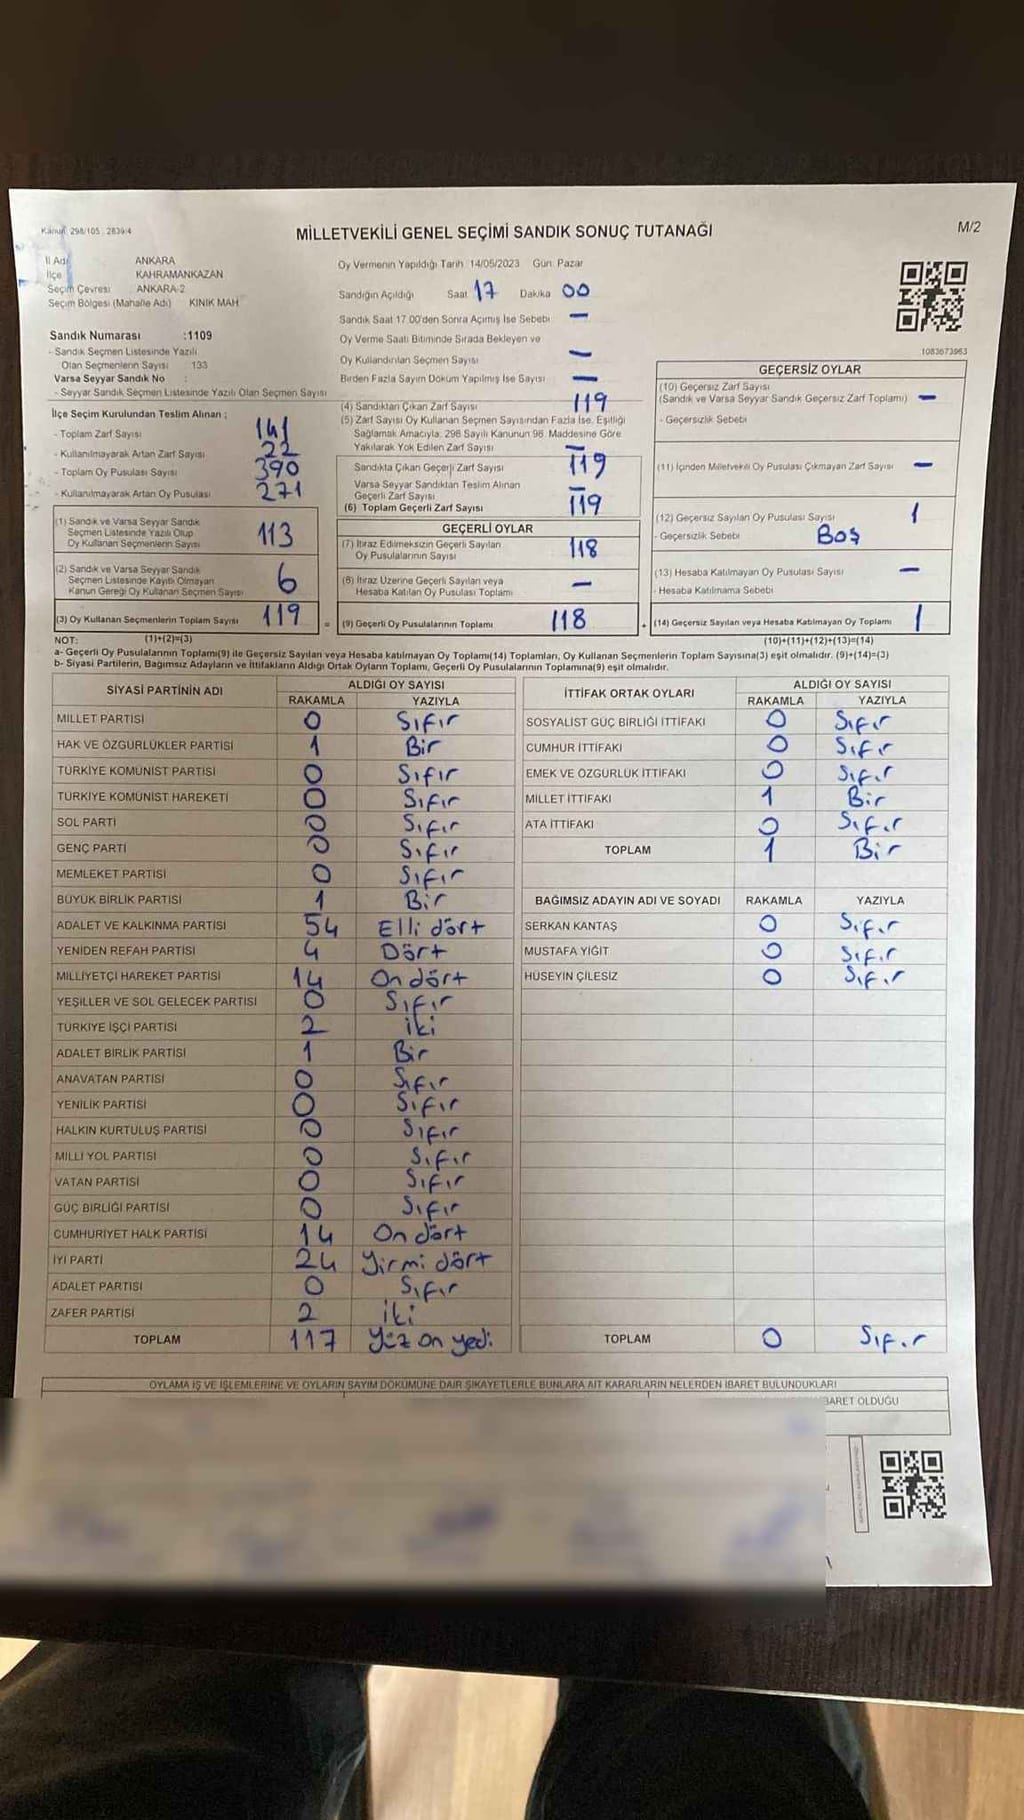 Kanun 298/105 2839/4
MİLLETVEKİLİ GENEL SEÇİMİ SANDIK SONUÇ TUTANAĞI
M/2
İl Adı ANKARA
İlçe KAHRAMANKAZAN
Seçim Çevresi ANKARA-2
Seçim Bölgesi (Mahalle Adı) KINIK MAH
Sandık Numarası :1109
- Sandık Seçmen Listesinde Yazılı
Olan Seçmenlerin Sayısı 133
Varsa Seyyar Sandık No :
- Seyyar Sandık Seçmen Listesinde Yazılı Olan Seçmen Sayısı
İlçe Seçim Kurulundan Teslim Alınan ;
- Toplam Zarf Sayısı 141
- Kullanılmayarak Artan Zarf Sayısı 22
- Toplam Oy Pusulası Sayısı 390
- Kullanılmayarak Artan Oy Pusulası 271
(1) Sandık ve Varsa Seyyar Sandık
Seçmen Listesinde Yazılı Olup
Oy Kullanan Seçmenlerin Sayısı 113
(2) Sandık ve Varsa Seyyar Sandık
Seçmen Listesinde Kayıtlı Olmayan
Kanun Gereği Oy Kullanan Seçmen Sayısı 6
(3) Oy Kullanan Seçmenlerin Toplam Sayısı 119 =
Oy Vermenin Yapıldığı Tarih 14/05/2023 Gün: Pazar
Sandığın Açıldığı Saat 17 Dakika 00
Sandık Saat 17.00'den Sonra Açımış İse Sebebi –
Oy Verme Saati Bitiminde Sırada Bekleyen ve
Oy Kullandırılan Seçmen Sayısı –
Birden Fazla Sayım Döküm Yapılmış İse Sayısı –
(4) Sandıktan Çıkan Zarf Sayısı 119
(5) Zarf Sayısı Oy Kullanan Seçmen Sayısından Fazla İse, Eşitliği
Sağlamak Amacıyla, 298 Sayılı Kanunun 98. Maddesine Göre
Yakılarak Yok Edilen Zarf Sayısı –
Sandıkta Çıkan Geçerli Zarf Sayısı 119
Varsa Seyyar Sandıktan Teslim Alınan
Geçerli Zarf Sayısı –
(6) Toplam Geçerli Zarf Sayısı 119
GEÇERLİ OYLAR
(7) İtiraz Edilmeksizin Geçerli Sayılan
Oy Pusulalarının Sayısı 118
(8) İtiraz Üzerine Geçerli Sayılan veya
Hesaba Katılan Oy Pusulası Toplamı –
(9) Geçerli Oy Pusulalarının Toplamı 118 +
1083673963
GEÇERSİZ OYLAR
(10) Geçersiz Zarf Sayısı
(Sandık ve Varsa Seyyar Sandık Geçersiz Zarf Toplamı) –
- Geçersizlik Sebebi
(11) İçinden Milletvekili Oy Pusulası Çıkmayan Zarf Sayısı –
(12) Geçersiz Sayılan Oy Pusulası Sayısı 1
- Geçersizlik Sebebi Boş
(13) Hesaba Katılmayan Oy Pusulası Sayısı –
- Hesaba Katılmama Sebebi
(14) Geçersiz Sayılan veya Hesaba Katılmayan Oy Toplamı 1
NOT: (1)+(2)=(3) (10)+(11)+(12)+(13)=(14)
a- Geçerli Oy Pusulalarının Toplamı(9) ile Geçersiz Sayılan veya Hesaba katılmayan Oy Toplamı(14) Toplamları, Oy Kullanan Seçmenlerin Toplam Sayısına(3) eşit olmalıdır. (9)+(14)=(3)
b- Siyasi Partilerin, Bağımsız Adayların ve İttifakların Aldığı Ortak Oyların Toplamı, Geçerli Oy Pusulalarının Toplamına(9) eşit olmalıdır.
SİYASİ PARTİNİN ADI ALDIĞI OY SAYISI
RAKAMLA YAZIYLA
MİLLET PARTİSİ 0 Sıfır
HAK VE ÖZGÜRLÜKLER PARTİSİ 1 Bir
TÜRKİYE KOMÜNİST PARTİSİ 0 Sıfır
TÜRKİYE KOMÜNİST HAREKETİ 0 Sıfır
SOL PARTİ 0 Sıfır
GENÇ PARTİ 0 Sıfır
MEMLEKET PARTİSİ 0 Sıfır
BÜYÜK BİRLİK PARTİSİ 1 Bir
ADALET VE KALKINMA PARTİSİ 54 Elli dört
YENİDEN REFAH PARTİSİ 4 Dört
MİLLİYETÇİ HAREKET PARTİSİ 14 On dört
YEŞİLLER VE SOL GELECEK PARTİSİ 0 Sıfır
TÜRKİYE İŞÇİ PARTİSİ 2 iki
ADALET BİRLİK PARTİSİ 1 Bir
ANAVATAN PARTİSİ 0 Sıfır
YENİLİK PARTİSİ 0 Sıfır
HALKIN KURTULUŞ PARTİSİ 0 Sıfır
MİLLİ YOL PARTİSİ 0 Sıfır
VATAN PARTİSİ 0 Sıfır
GÜÇ BİRLİĞİ PARTİSİ 0 Sıfır
CUMHURİYET HALK PARTİSİ 14 On dört
İYİ PARTİ 24 Yirmi dört
ADALET PARTİSİ 0 Sıfır
ZAFER PARTİSİ 2 iki
TOPLAM 117 Yüz on yedi
İTTİFAK ORTAK OYLARI ALDIĞI OY SAYISI
RAKAMLA YAZIYLA
SOSYALİST GÜÇ BİRLİĞİ İTTİFAKI 0 Sıfır
CUMHUR İTTİFAKI 0 Sıfır
EMEK VE ÖZGÜRLÜK İTTİFAKI 0 Sıfır
MİLLET İTTİFAKI 1 Bir
ATA İTTİFAKI 0 Sıfır
TOPLAM 1 Bir
BAĞIMSIZ ADAYIN ADI VE SOYADI RAKAMLA YAZIYLA
SERKAN KANTAŞ 0 Sıfır
MUSTAFA YİĞİT 0 Sıfır
HÜSEYİN ÇİLESİZ 0 Sıfır
TOPLAM 0 Sıfır
OYLAMA İŞ VE İŞLEMLERİNE VE OYLARIN SAYIM DÖKÜMÜNE DAİR ŞİKAYETLERLE BUNLARA AİT KARARLARIN NELERDEN İBARET BULUNDUKLARI
İBARET OLDUĞU